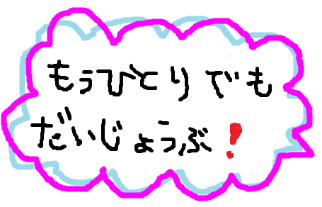 もうひとりでも
だいじょうぶ！